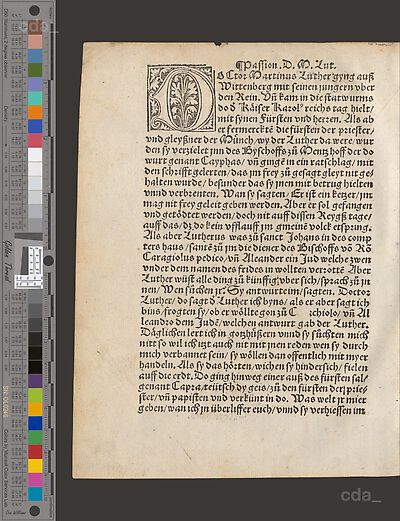 ¶Passion. D. M. Lut.
DOctor Martinus Luther gyng auß
Wittenberg mit seinen jungern vber
den Rein. Vñ kam in die stat wurms
do d̄ Kaiser Karolꝰ reichs tag hielt/
mit synen Fürsten vnd herren. Als ab
er fermerckte die fürsten der priester/
vnd gleyßner der Münch/ wy der Luther da were/ wur
den sy verzielet ynn des Byschoffs zů Mentz hoff der do
wurt genant Cayphas/ vñ gungē im ein ratschlag/ mit
den schrifft gelerten/ das ym frey zů gesagt gleyt nit ge-
halten wurde/ besunder das sy ynn mit betrug hielten
vnnd verbrenten. Wan sy sagten. Er ist ein ketzer/ ym
mag nit frey geleit geben werden. Aber er sol gefangen
vnd getödtet werden/ doch nit auff dissen Reygß tage/
auff das/ dz do kein vfflauff ym gmeinē volck ersprung.
Als aber Lutherus was zů sanct Johans in des comp
ters haus/ santē zů ym die diener des Byschoffs vō Rō
Caragiolus pedico/ vñ Alleander ein Jud welche zwen
vnder dem namen des frides in wollten verrottē Aber
Luther wüst alle ding zů künfftig vber sich/ sprach zů yn
nen/ Wen sůchen jr. Sy antwurten im/ sagten. Doctor
Luther/ do sagt d̄ Luther ich byns/ als er aber sagt ich
bins/ frogten sy/ ob er wöllte gon zů C archiolo/ vñ Al
leandro dem Judē/ welchen antwurt gab der Luther.
Däglichen lert ich in gotzhüßern vnnd sy süchten mich
nitt so wil ich itzt auch nit mit ynen reden wen sy durch
mich verbannet sein/ sy wöllen dan offentlich mit myer
handeln. Als sy das hörten/ wichen sy hindersich/ fielen
auff die erdt. Do ging hinweg einer auß des fürsten sal/
genant Capra/ teütsch dy geis/ zů den fürsten der pries-
ster/ vñ papisten vnd verkünt in do. Was welt jr mier
geben/ wan ich jn überliffer euch/ vnnd sy verhiessen im
Gilles Thread
cda_
cda_